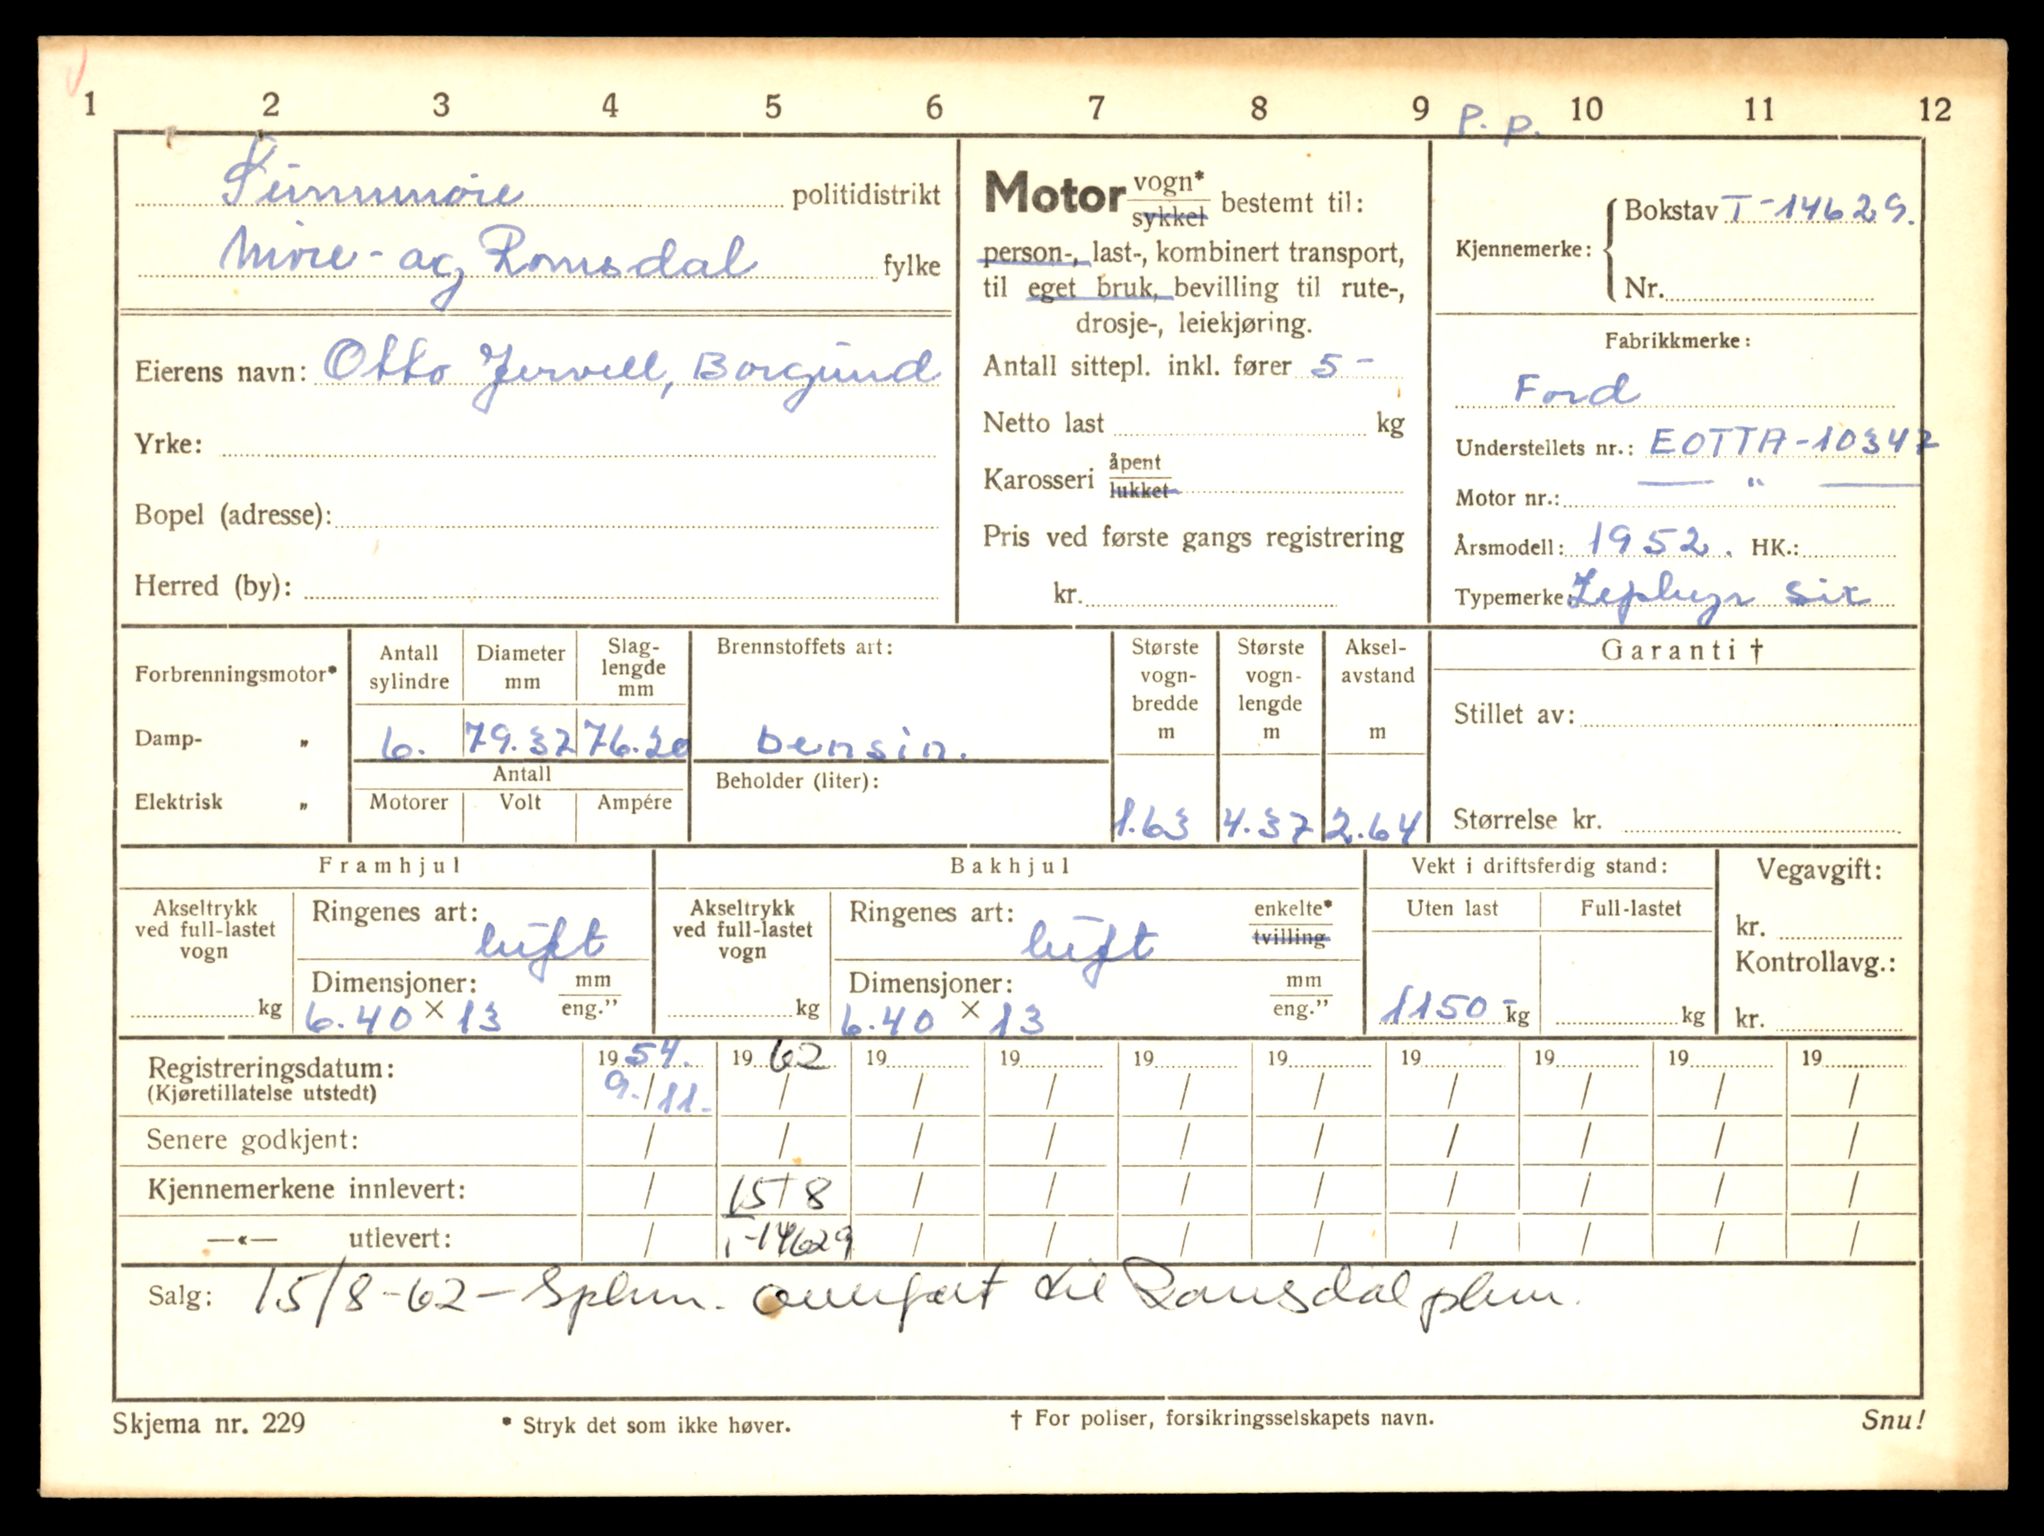 1 2 3 4 5 6 7 8 9 P. p. 10 11 12
Sunnmøre politidistrikt
Møre- og Romsdal fylke
Eierens navn: Otto Jervell, Borgund
Yrke:
Bopel (adresse):
Herred (by):
Motor vogn* sykkel bestemt til:
person-, last-, kombinert transport,
til eget bruk, bevilling til rute-,
drosje-, leiekjøring.
Antall sittepl. inkl. fører 5 -
Netto last kg
Karosseri åpent lukket
Pris ved første gangs registrering
kr.
Kjennemerke: Bokstav T-14629.
Nr.
Fabrikkmerke:
Ford
Understellets nr.: EOTTA-10347
Motor nr.: — " —
Årsmodell: 1952. HK.:
Typemerke: Zephyr six
Forbrenningsmotor*
Damp- „
Elektrisk „
Antall sylindre
6.
Diameter mm
79.37
Slag-lengde mm
76.20
Antall
Motorer Volt Ampére
Brennstoffets art:
bensin.
Beholder (liter):
Største vogn-bredde m
1.63
Største vogn-lengde m
4.37
Aksel-avstand m
2.64
Garanti †
Stillet av:
Størrelse kr.
Framhjul
Akseltrykk ved full-lastet vogn
kg
Ringenes art: luft
Dimensjoner: mm eng."
6.40 × 13
Bakhjul
Akseltrykk ved full-lastet vogn
kg
Ringenes art: luft enkelte* tvilling
Dimensjoner: mm eng."
6.40 × 13
Vekt i driftsferdig stand:
Uten last Full-lastet
1150 - kg kg
Vegavgift:
kr.
Kontrollavg.:
kr.
Registreringsdatum: 1954. 1962 19 19 19 19 19 19 19 19
(Kjøretillatelse utstedt) 9./11. / / / / / / / / /
Senere godkjent: / / / / / / / / / /
Kjennemerkene innlevert: / 15/8 / / / / / / / /
—«— utlevert: / T-14629 / / / / / / / /
Salg: 15/8-62 - Spkm. overført til Romsdal pkm.
Skjema nr. 229
* Stryk det som ikke høver.
† For poliser, forsikringsselskapets navn.
Snu!